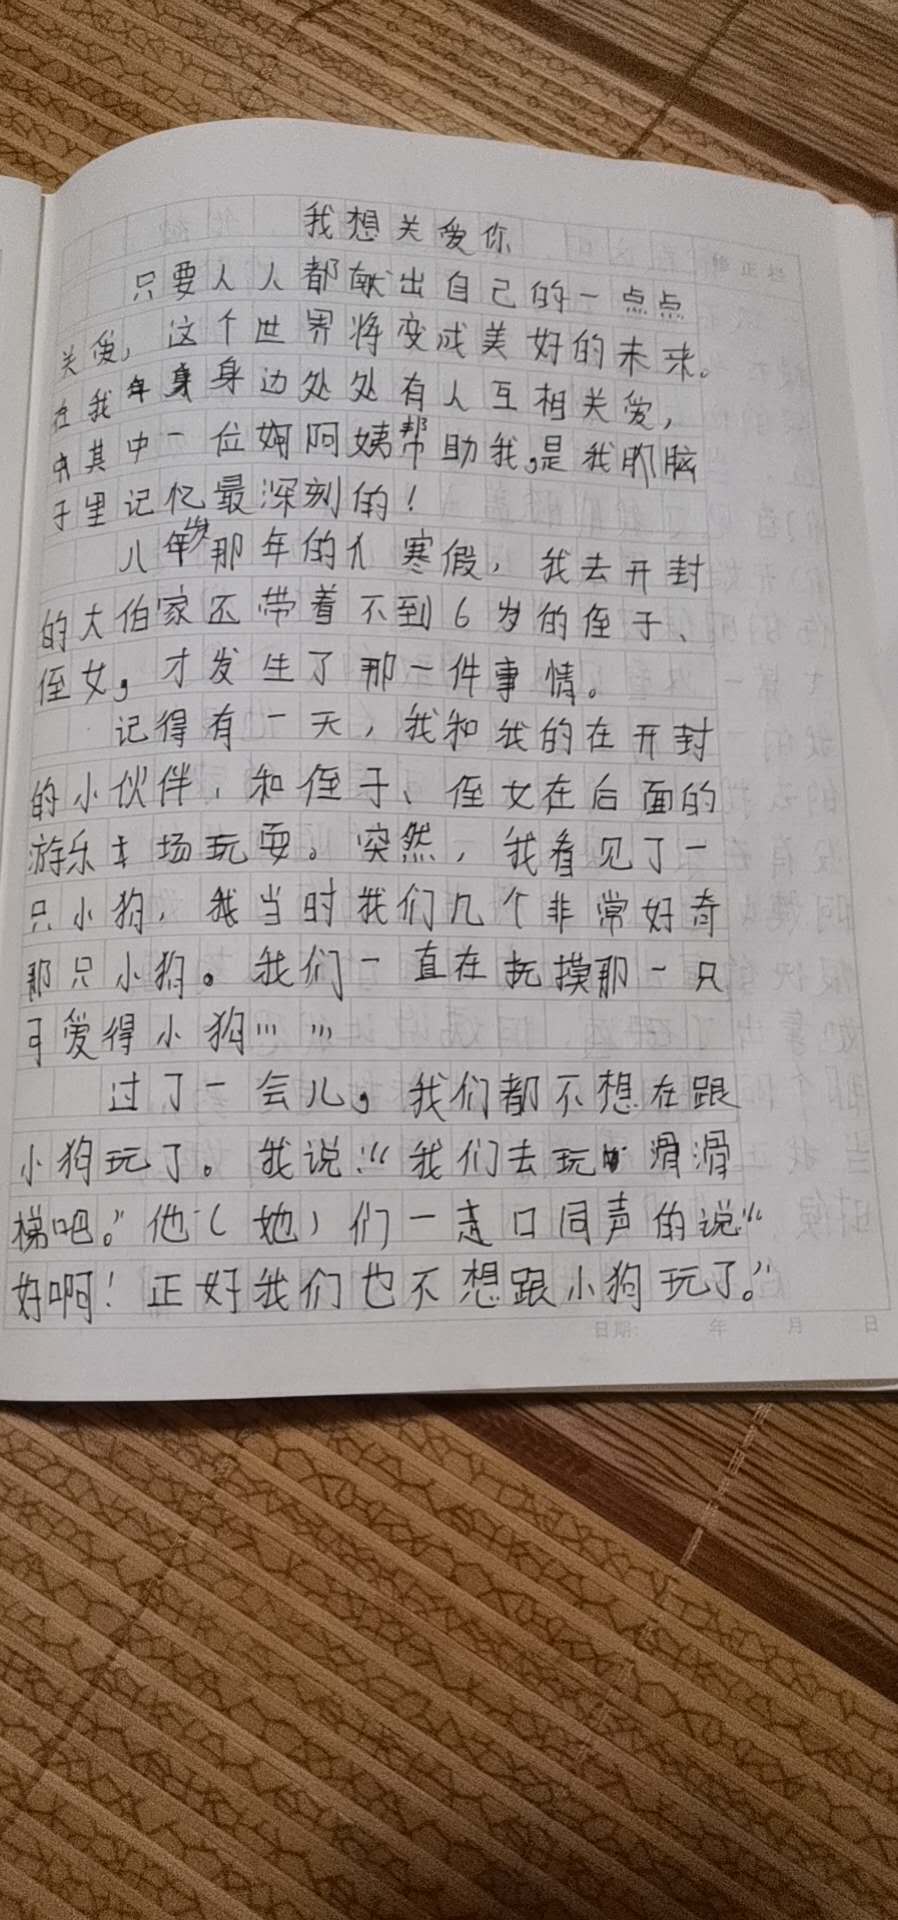 我想关爱你
只要人人都献出自己的一点点
关爱，这个世界将变成美好的未来。
在我身边处处有人互相关爱，
其中一位阿姨帮助我，是我脑
子里记忆最深刻的！
八岁那年的寒假，我去开封
的大伯家还带着不到6岁的侄子、
侄女，才发生了那一件事情。
记得有一天，我和我的在开封
的小伙伴，和侄子、侄女在后面的
游乐场玩耍。突然，我看见了一
只小狗，我当时我们几个非常好奇
那只小狗。我们一直在抚摸那一只
可爱得小狗……
过了一会儿，我们都不想在跟
小狗玩了。我说：“我们去玩滑滑
梯吧。”他（她）们一起口同声的说“
好啊！正好我们也不想跟小狗玩了。”
日期： 年 月 日